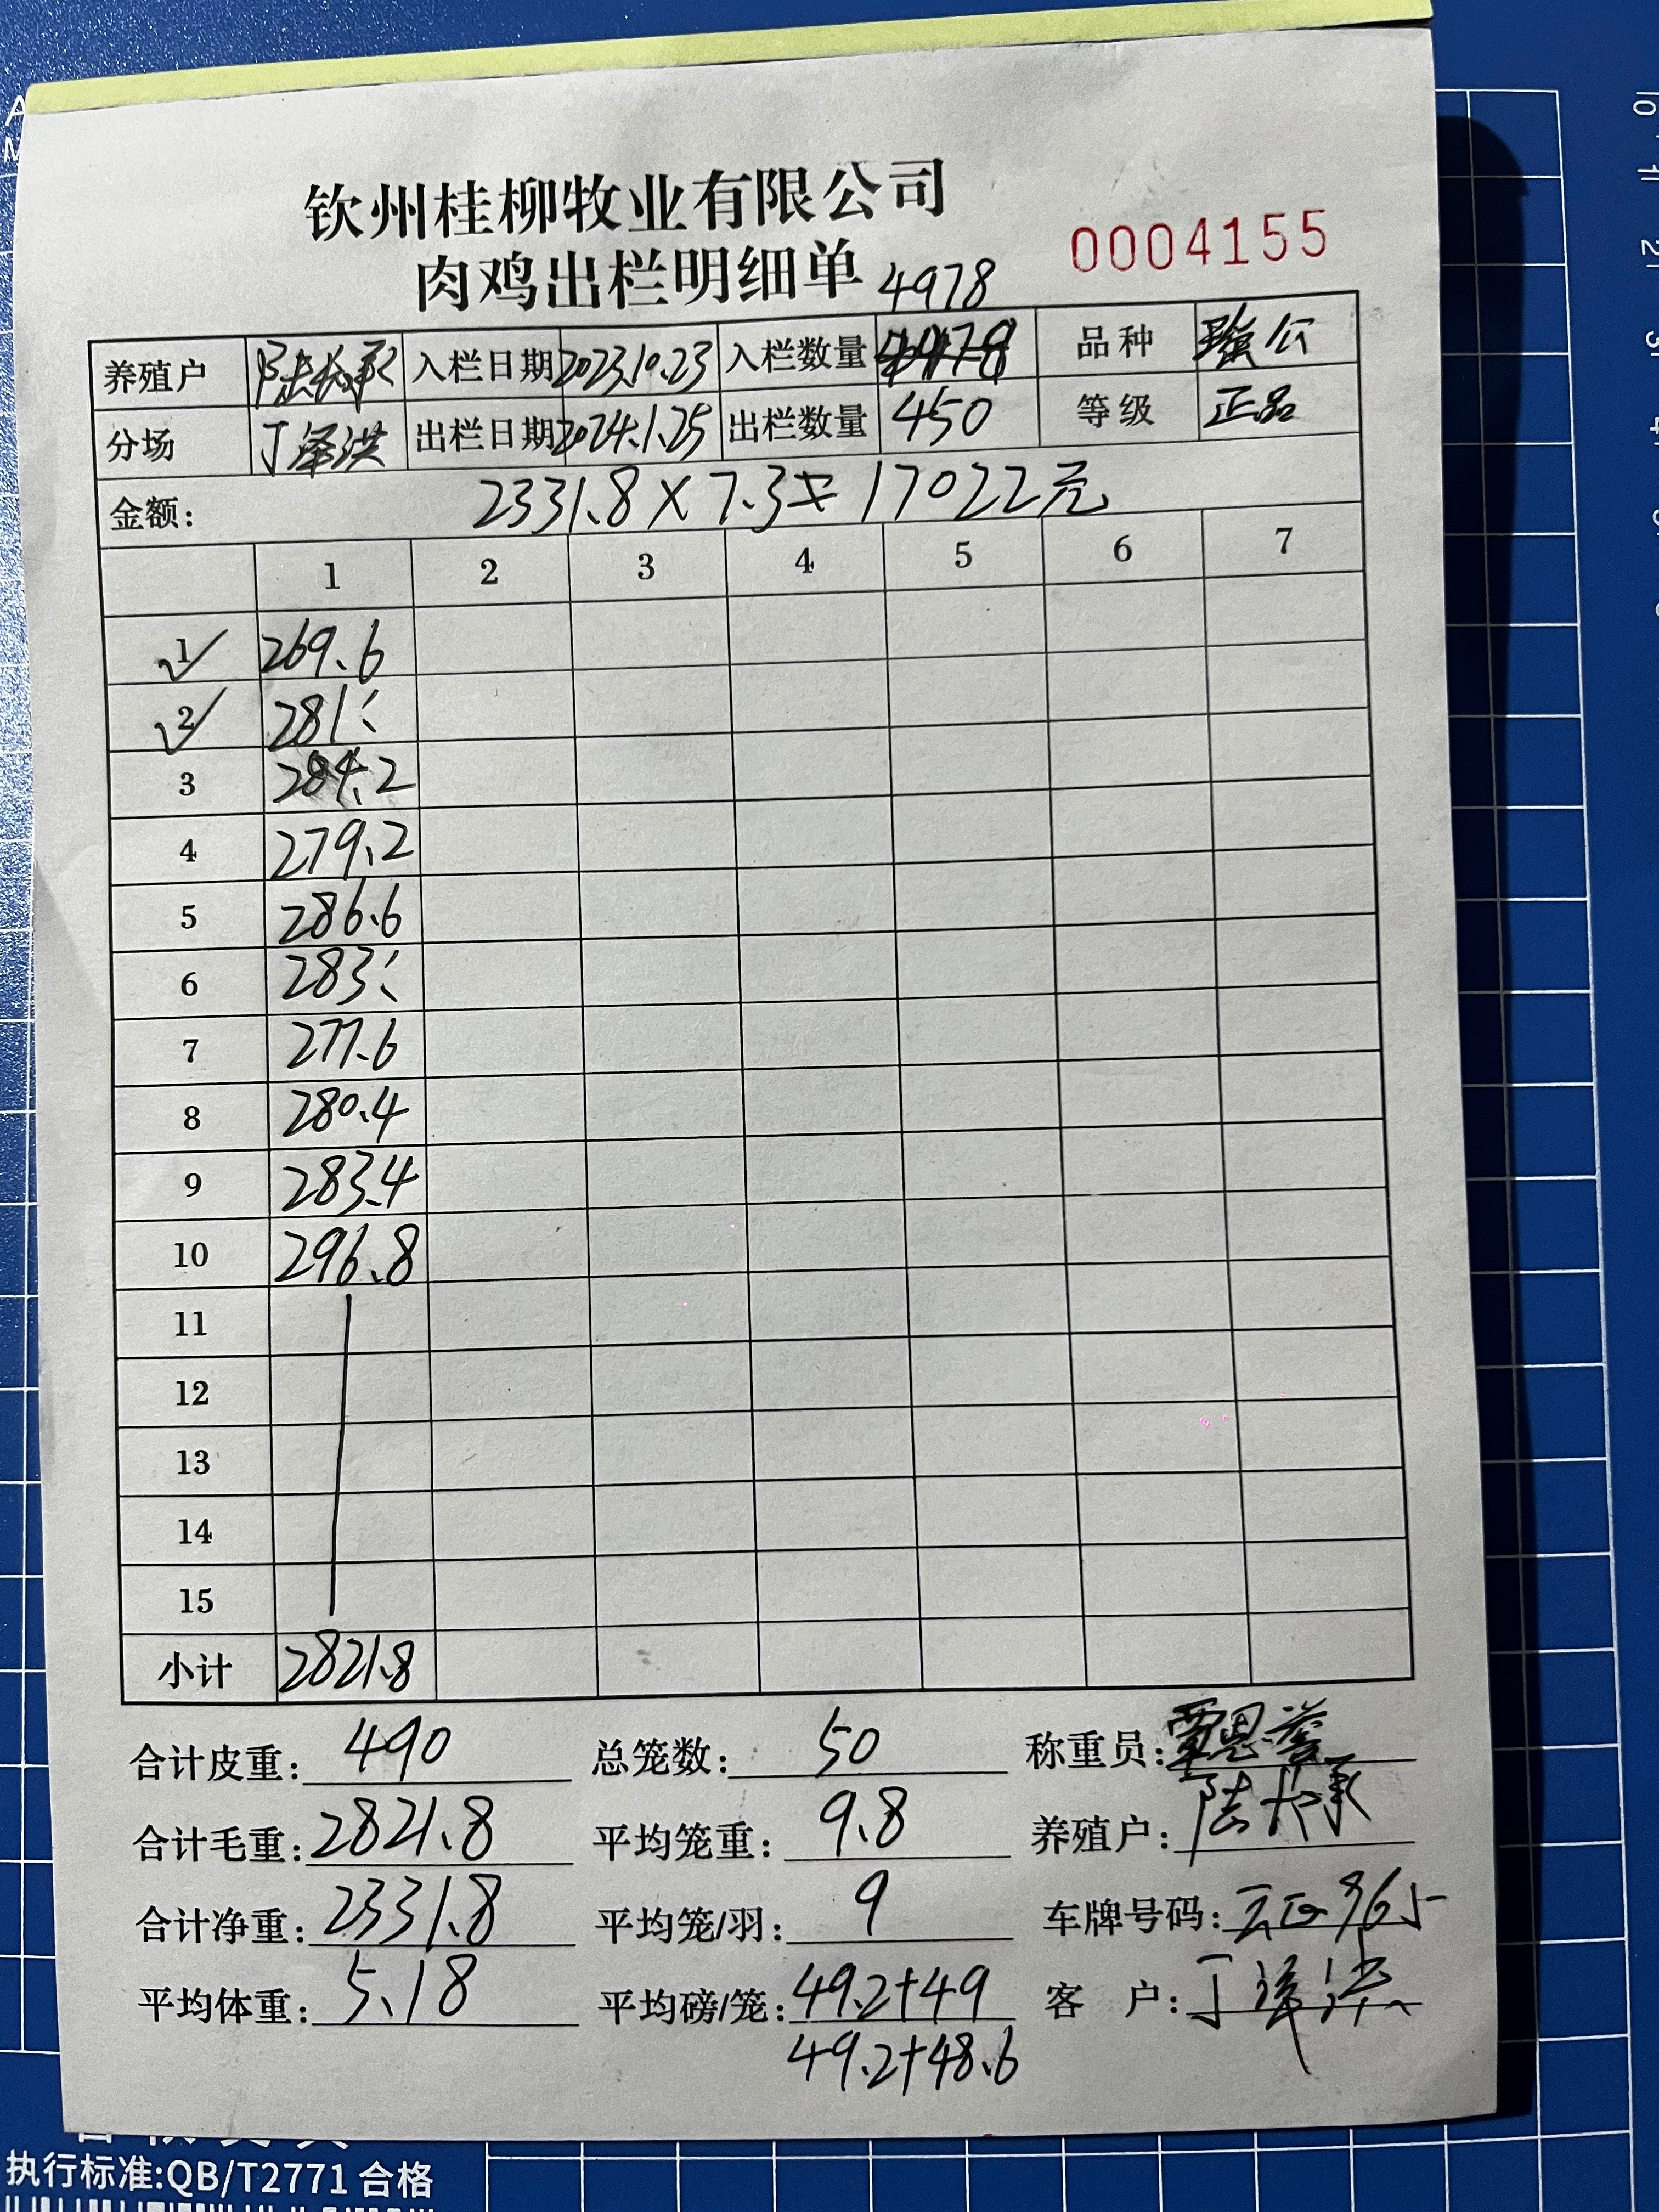 钦州桂柳牧业有限公司
肉鸡出栏明细单
0004155
4978
养殖户 陆大承 入栏日期 2023.10.23 入栏数量 品种 瑶公
分场 丁泽洪 出栏日期 2024.1.25 出栏数量 450 等级 正品
金额: 2331.8×7.3=17022元
1 2 3 4 5 6 7
1 269.6
2 281:
3 284.2
4 279.2
5 286.6
6 283:
7 277.6
8 280.4
9 283.4
10 296.8
11
12
13
14
15
小计 2821.8
合计皮重: 490 总笼数: 50 称重员: 覃恩誉
合计毛重: 2821.8 平均笼重: 9.8 养殖户: 陆大承
合计净重: 2331.8 平均笼/羽: 9 车牌号码: 365
平均体重: 5.18 平均磅/笼: 49.2+49 客 户: 丁泽洪
49.2+48.6
执行标准:QB/T2771 合格